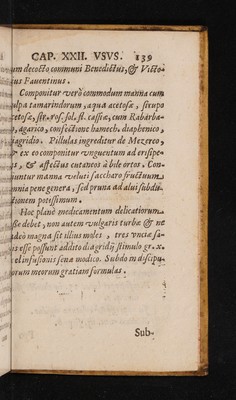 CAP. XXII. VSVS. 139
um decocto communi Benedictus, & Victo-
ius Fauentinus.
Componitur verò commodum manna cum
ulpa tamarindorum, aqua acetosæ, sirupo
cetosæ, sir. ros. sol. fl. cassiæ, cum Rabarba-
o, agarico, confectione hamech. diaphenico,
iagridio. Pillulas ingreditur de Mezereo,
& ex eo componitur vnguentum ad erisipe-
s, & affectus cutaneos à bile ortos. Con-
untur manna veluti saccharo fructuum
mnia pene genera, sed pruna ad alui subdu-
tionem potissimum.
Hoc planè medicamentum delicatiorum
sse debet, non autem vulgaris turbæ & ne
adeò magna sit illius moles, tres vnciæ sa-
is esse possunt addito diagridij stimulo gr. x.
el infusionis senæ modico. Subdo in discipu-
orum meorum gratiam formulas.
Sub-